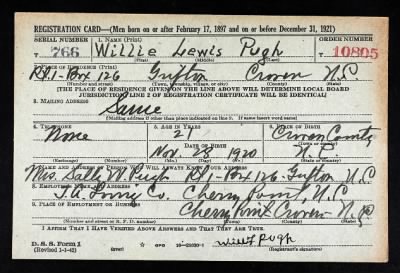 REGISTRATION CARD—(Men born on or after February 17, 1897 and on or before December 31, 1921)
SERIAL NUMBER 1. NAME (Print) ORDER NUMBER
T 766 Willie Lewis Pugh 10805
(First) (Middle) (Last)
2. PLACE OF RESIDENCE (Print)
Rt. 1-Box 126 Grifton Craven N.C.
(Number and street) (Town, township, village, or city) (County) (State)
[THE PLACE OF RESIDENCE GIVEN ON THE LINE ABOVE WILL DETERMINE LOCAL BOARD
JURISDICTION; LINE 2 OF REGISTRATION CERTIFICATE WILL BE IDENTICAL]
3. MAILING ADDRESS
Same
[Mailing address if other than place indicated on line 2. If same insert word same]
4. TELEPHONE 5. AGE IN YEARS 6. PLACE OF BIRTH
None 21 Craven County
DATE OF BIRTH (Town or county)
Nov. 28 1920 N.C.
(Exchange) (Number) (Mo.) (Day) (Yr.) (State or country)
7. NAME AND ADDRESS OF PERSON WHO WILL ALWAYS KNOW YOUR ADDRESS
Mrs. Sally W. Pugh Rt. 1-Box 126-Grifton N.C.
8. EMPLOYER'S NAME AND ADDRESS
Cherry Point, N.C.
9. PLACE OF EMPLOYMENT OR BUSINESS
Cherry Point Craven N.C.
(Number and street or R. F. D. number) (Town) (County) (State)
I AFFIRM THAT I HAVE VERIFIED ABOVE ANSWERS AND THAT THEY ARE TRUE.
D. S. S. Form 1
(Revised 1-1-42) (over) GPO 16—21630-1 Pugh
(Registrant's signature)